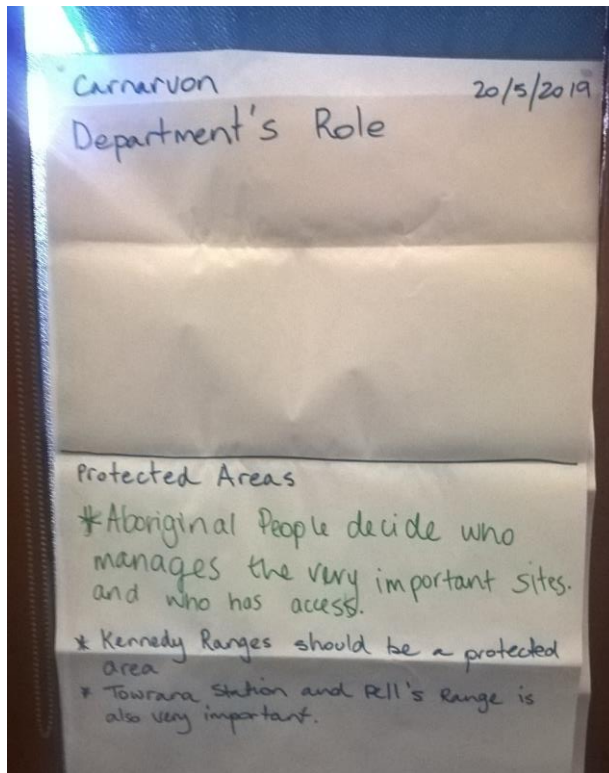 Carnarvon 20/5/2019
Department's Role
Protected Areas
*Aboriginal People decide who
manages the very important sites.
and who has access.
* Kennedy Ranges should be a protected
area
* Towrana Station and Pell's Range is
also very important.